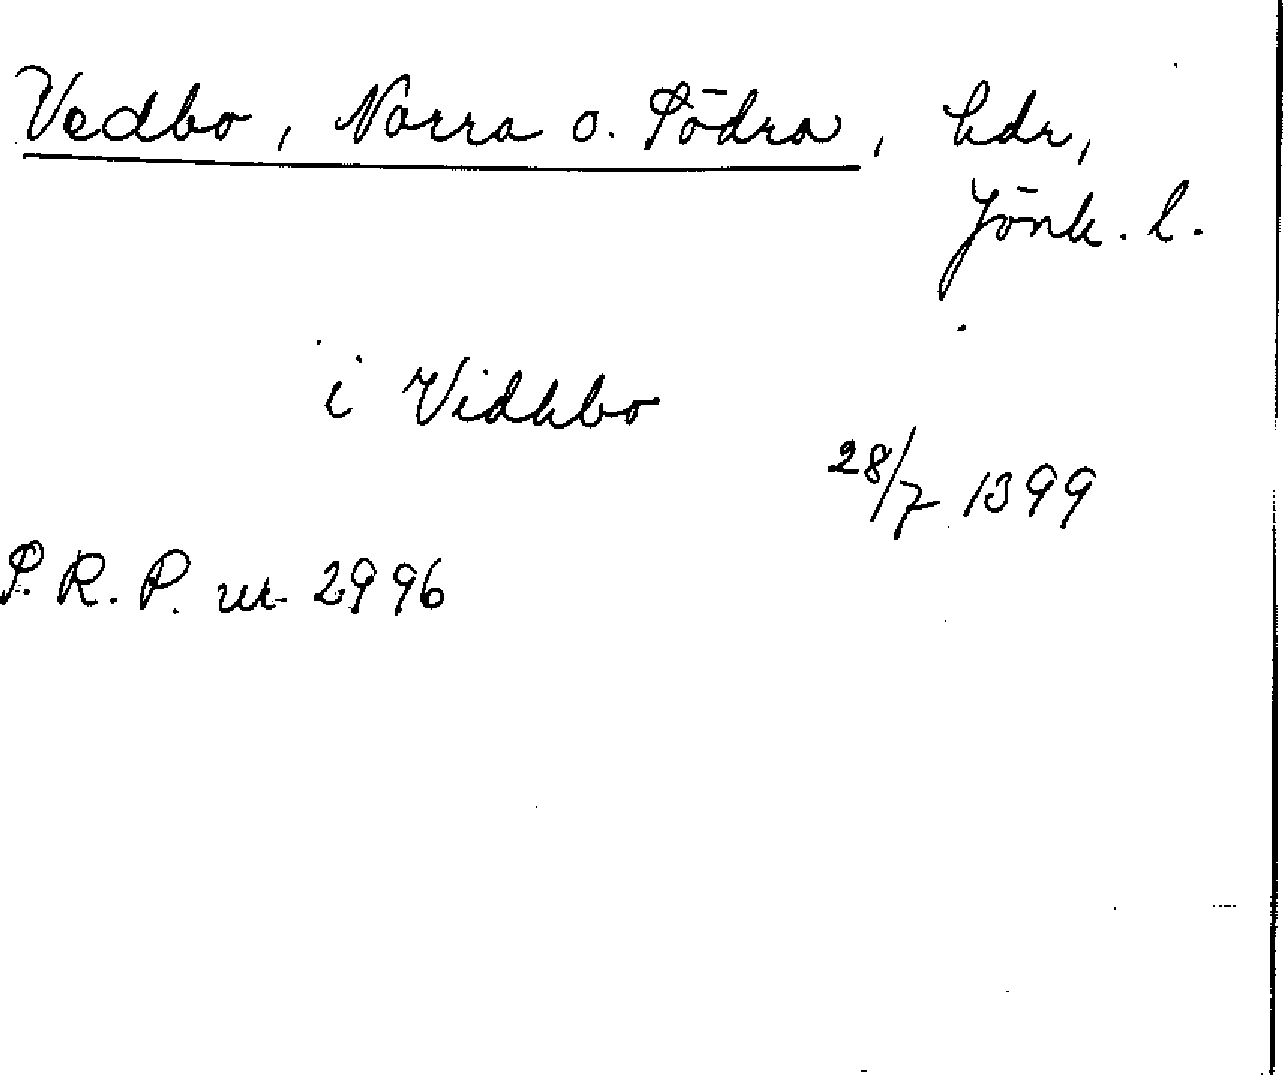 Vedbo, Norra o. Södra, hdr,
Jönk. l.
i Vidhbo
28/7 1399
S. R. P. nr 2996